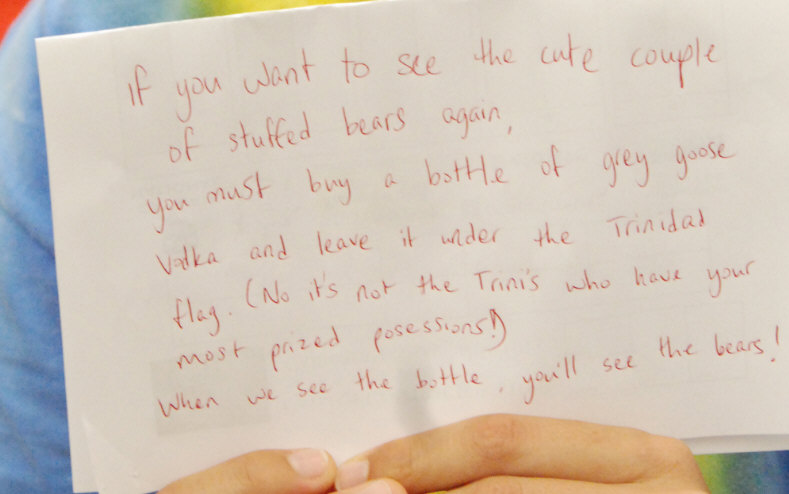 if you want to see the cute couple
of stuffed bears again,
you must buy a bottle of grey goose
Vodka and leave it under the Trinidad
flag. (No it's not the Trini's who have your
most prized posessions!)
When we see the bottle, you'll see the bears!